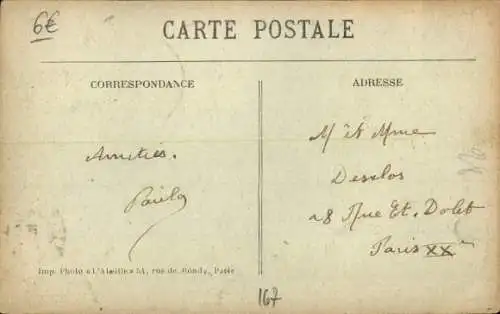 6€
CARTE POSTALE
CORRESPONDANCE
ADRESSE
Amitiés.
M et Mme
Desclos
18 Rue Et. Dolet
Paris XXe
Imp. Photo rue de Bondy, Paris
167